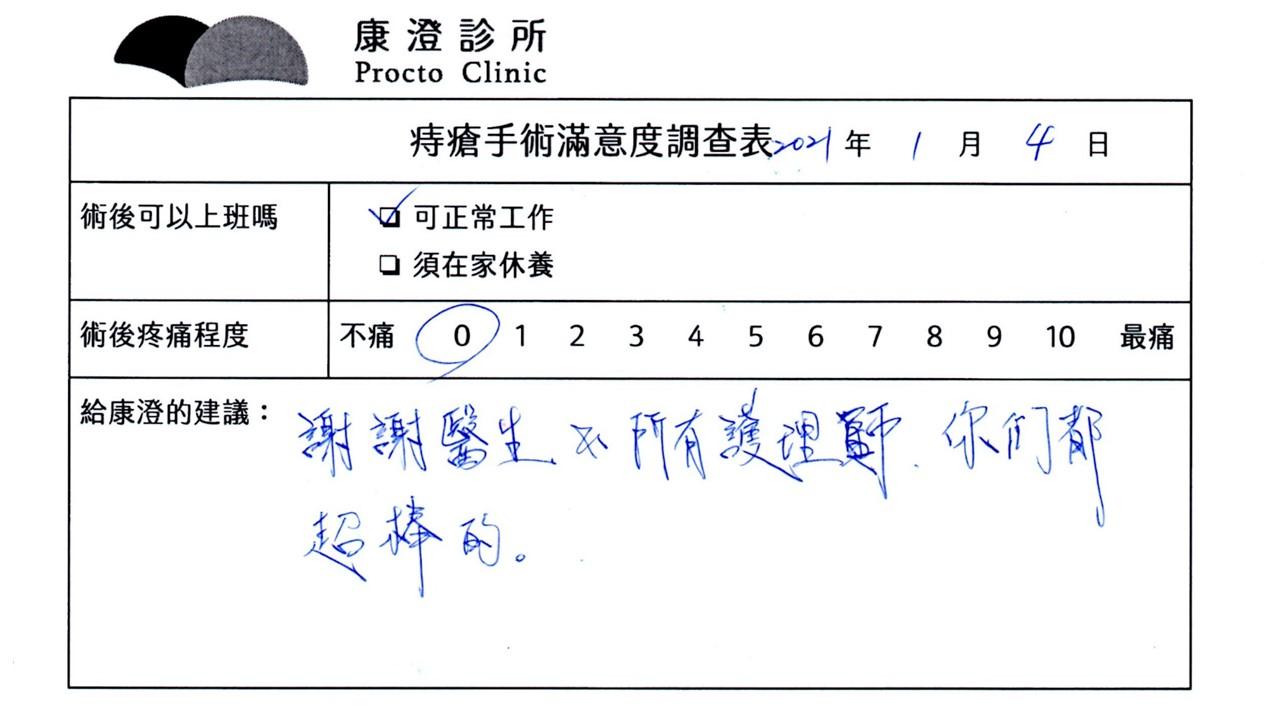 康澄診所
Procto Clinic
痔瘡手術滿意度調查表 2021 年 1 月 4 日
術後可以上班嗎
☑ 可正常工作
☐ 須在家休養
術後疼痛程度 不痛 0 1 2 3 4 5 6 7 8 9 10 最痛
給康澄的建議：謝謝醫生及所有護理師.你們都
超棒的。